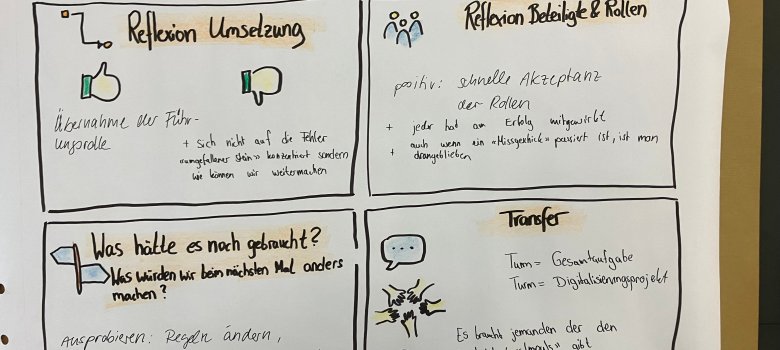 Reflexion Umsetzung
Übernahme der Füh-
rungsrolle
+ Sich nicht auf die Fehler
«umgefallener Stein» konzentriert sondern
wie können wir weitermachen
Reflexion Beteiligte & Rollen
positiv: schnelle Akzeptanz
der Rollen
+ jeder hat am Erfolg mitgewirkt
+ auch wenn ein «Missgeschick» passiert ist, ist man
drangeblieben
Was hätte es noch gebraucht?
Was würden wir beim nächsten Mal anders
machen?
Ausprobieren: Regeln ändern,
Transfer
Turm = Gesamtaufgabe
Turm = Digitalisierungsprojekt
Es braucht jemanden der den
«Impuls» gibt